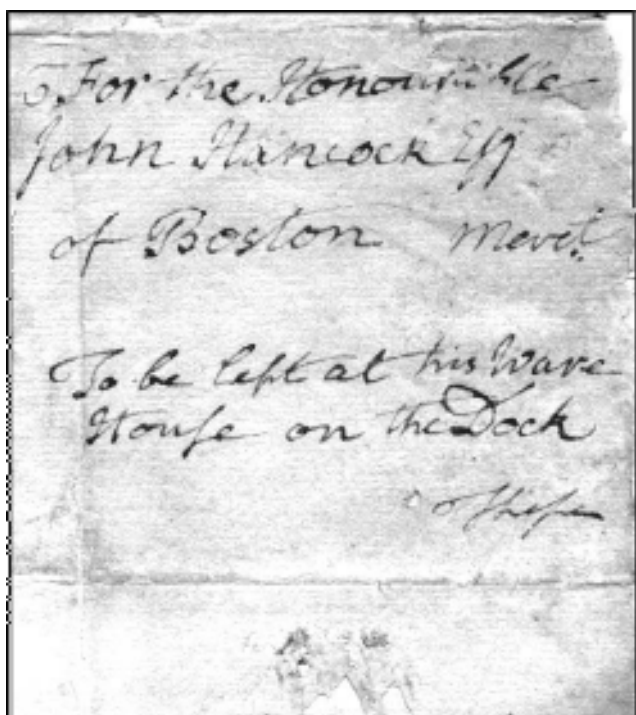 For the Honourible
John Hancock Esq
of Boston Mercht.
To be left at his Ware
House on the Dock
These